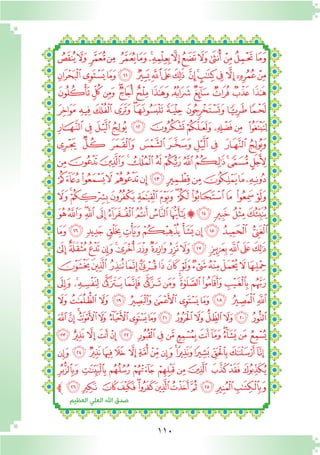 وَمَا تَحْمِلُ مِنْ أُنثَىٰ وَلَا تَضَعُ إِلَّا بِعِلْمِهِۦ ۚ وَمَا يُعَمَّرُ مِن مُّعَمَّرٍ وَلَا يُنقَصُ
مِنْ عُمُرِهِۦٓ إِلَّا فِى كِتَٰبٍ ۚ إِنَّ ذَٰلِكَ عَلَى ٱللَّهِ يَسِيرٌ ﴿١١﴾ وَمَا يَسْتَوِى ٱلْبَحْرَانِ
هَٰذَا عَذْبٌ فُرَاتٌ سَآئِغٌ شَرَابُهُۥ وَهَٰذَا مِلْحٌ أُجَاجٌ ۖ وَمِن كُلٍّ تَأْكُلُونَ
لَحْمًا طَرِيًّا وَتَسْتَخْرِجُونَ حِلْيَةً تَلْبَسُونَهَا ۖ وَتَرَى ٱلْفُلْكَ فِيهِ مَوَاخِرَ
لِتَبْتَغُوا۟ مِن فَضْلِهِۦ وَلَعَلَّكُمْ تَشْكُرُونَ ﴿١٢﴾ يُولِجُ ٱلَّيْلَ فِى ٱلنَّهَارِ
وَيُولِجُ ٱلنَّهَارَ فِى ٱلَّيْلِ وَسَخَّرَ ٱلشَّمْسَ وَٱلْقَمَرَ كُلٌّ يَجْرِى
لِأَجَلٍ مُّسَمًّى ۚ ذَٰلِكُمُ ٱللَّهُ رَبُّكُمْ لَهُ ٱلْمُلْكُ ۚ وَٱلَّذِينَ تَدْعُونَ مِن
دُونِهِۦ مَا يَمْلِكُونَ مِن قِطْمِيرٍ ﴿١٣﴾ إِن تَدْعُوهُمْ لَا يَسْمَعُوا۟ دُعَآءَكُمْ
وَلَوْ سَمِعُوا۟ مَا ٱسْتَجَابُوا۟ لَكُمْ ۖ وَيَوْمَ ٱلْقِيَٰمَةِ يَكْفُرُونَ بِشِرْكِكُمْ ۚ وَلَا
يُنَبِّئُكَ مِثْلُ خَبِيرٍ ﴿١٤﴾ ۞ يَٰٓأَيُّهَا ٱلنَّاسُ أَنتُمُ ٱلْفُقَرَآءُ إِلَى ٱللَّهِ ۖ وَٱللَّهُ هُوَ
ٱلْغَنِىُّ ٱلْحَمِيدُ ﴿١٥﴾ إِن يَشَأْ يُذْهِبْكُمْ وَيَأْتِ بِخَلْقٍ جَدِيدٍ ﴿١٦﴾ وَمَا
ذَٰلِكَ عَلَى ٱللَّهِ بِعَزِيزٍ ﴿١٧﴾ وَلَا تَزِرُ وَازِرَةٌ وِزْرَ أُخْرَىٰ ۚ وَإِن تَدْعُ مُثْقَلَةٌ إِلَىٰ
حِمْلِهَا لَا يُحْمَلْ مِنْهُ شَىْءٌ وَلَوْ كَانَ ذَا قُرْبَىٰٓ ۗ إِنَّمَا تُنذِرُ ٱلَّذِينَ يَخْشَوْنَ
رَبَّهُم بِٱلْغَيْبِ وَأَقَامُوا۟ ٱلصَّلَوٰةَ ۚ وَمَن تَزَكَّىٰ فَإِنَّمَا يَتَزَكَّىٰ لِنَفْسِهِۦ ۚ وَإِلَى
ٱللَّهِ ٱلْمَصِيرُ ﴿١٨﴾ وَمَا يَسْتَوِى ٱلْأَعْمَىٰ وَٱلْبَصِيرُ ﴿١٩﴾ وَلَا ٱلظُّلُمَٰتُ وَلَا
ٱلنُّورُ ﴿٢٠﴾ وَلَا ٱلظِّلُّ وَلَا ٱلْحَرُورُ ﴿٢١﴾ وَمَا يَسْتَوِى ٱلْأَحْيَآءُ وَلَا ٱلْأَمْوَٰتُ ۚ إِنَّ ٱللَّهَ
يُسْمِعُ مَن يَشَآءُ ۖ وَمَآ أَنتَ بِمُسْمِعٍ مَّن فِى ٱلْقُبُورِ ﴿٢٢﴾ إِنْ أَنتَ إِلَّا نَذِيرٌ ﴿٢٣﴾
إِنَّآ أَرْسَلْنَٰكَ بِٱلْحَقِّ بَشِيرًا وَنَذِيرًا ۚ وَإِن مِّنْ أُمَّةٍ إِلَّا خَلَا فِيهَا نَذِيرٌ ﴿٢٤﴾ وَإِن
يُكَذِّبُوكَ فَقَدْ كَذَّبَ ٱلَّذِينَ مِن قَبْلِهِمْ جَآءَتْهُمْ رُسُلُهُم بِٱلْبَيِّنَٰتِ وَبِٱلزُّبُرِ
وَبِٱلْكِتَٰبِ ٱلْمُنِيرِ ﴿٢٥﴾ ثُمَّ أَخَذْتُ ٱلَّذِينَ كَفَرُوا۟ ۖ فَكَيْفَ كَانَ نَكِيرِ ﴿٢٦﴾ ﴾
صدق الله العلي العظيم
١١٠